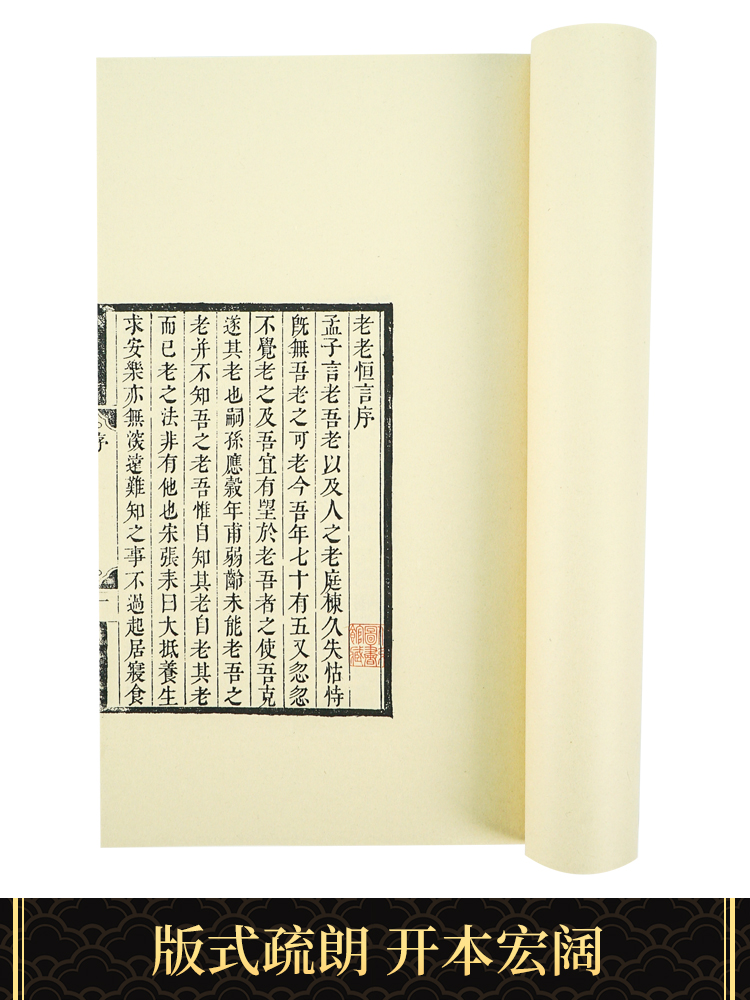 老老恒言序
孟子言老吾老以及人之老庭棟久失怙恃
旣無吾老之可老今吾年七十有五又忽忽
不覺老之及吾宜有望於老吾者之使吾克
遂其老也嗣孫應穀年甫弱齡未能老吾之
老并不知吾之老吾惟自知其老自老其老
而已老之法非有他也宋張耒曰大抵養生
求安樂亦無深遠難知之事不過起居寢食
序
一
圖書
館藏
版式疏朗 开本宏阔